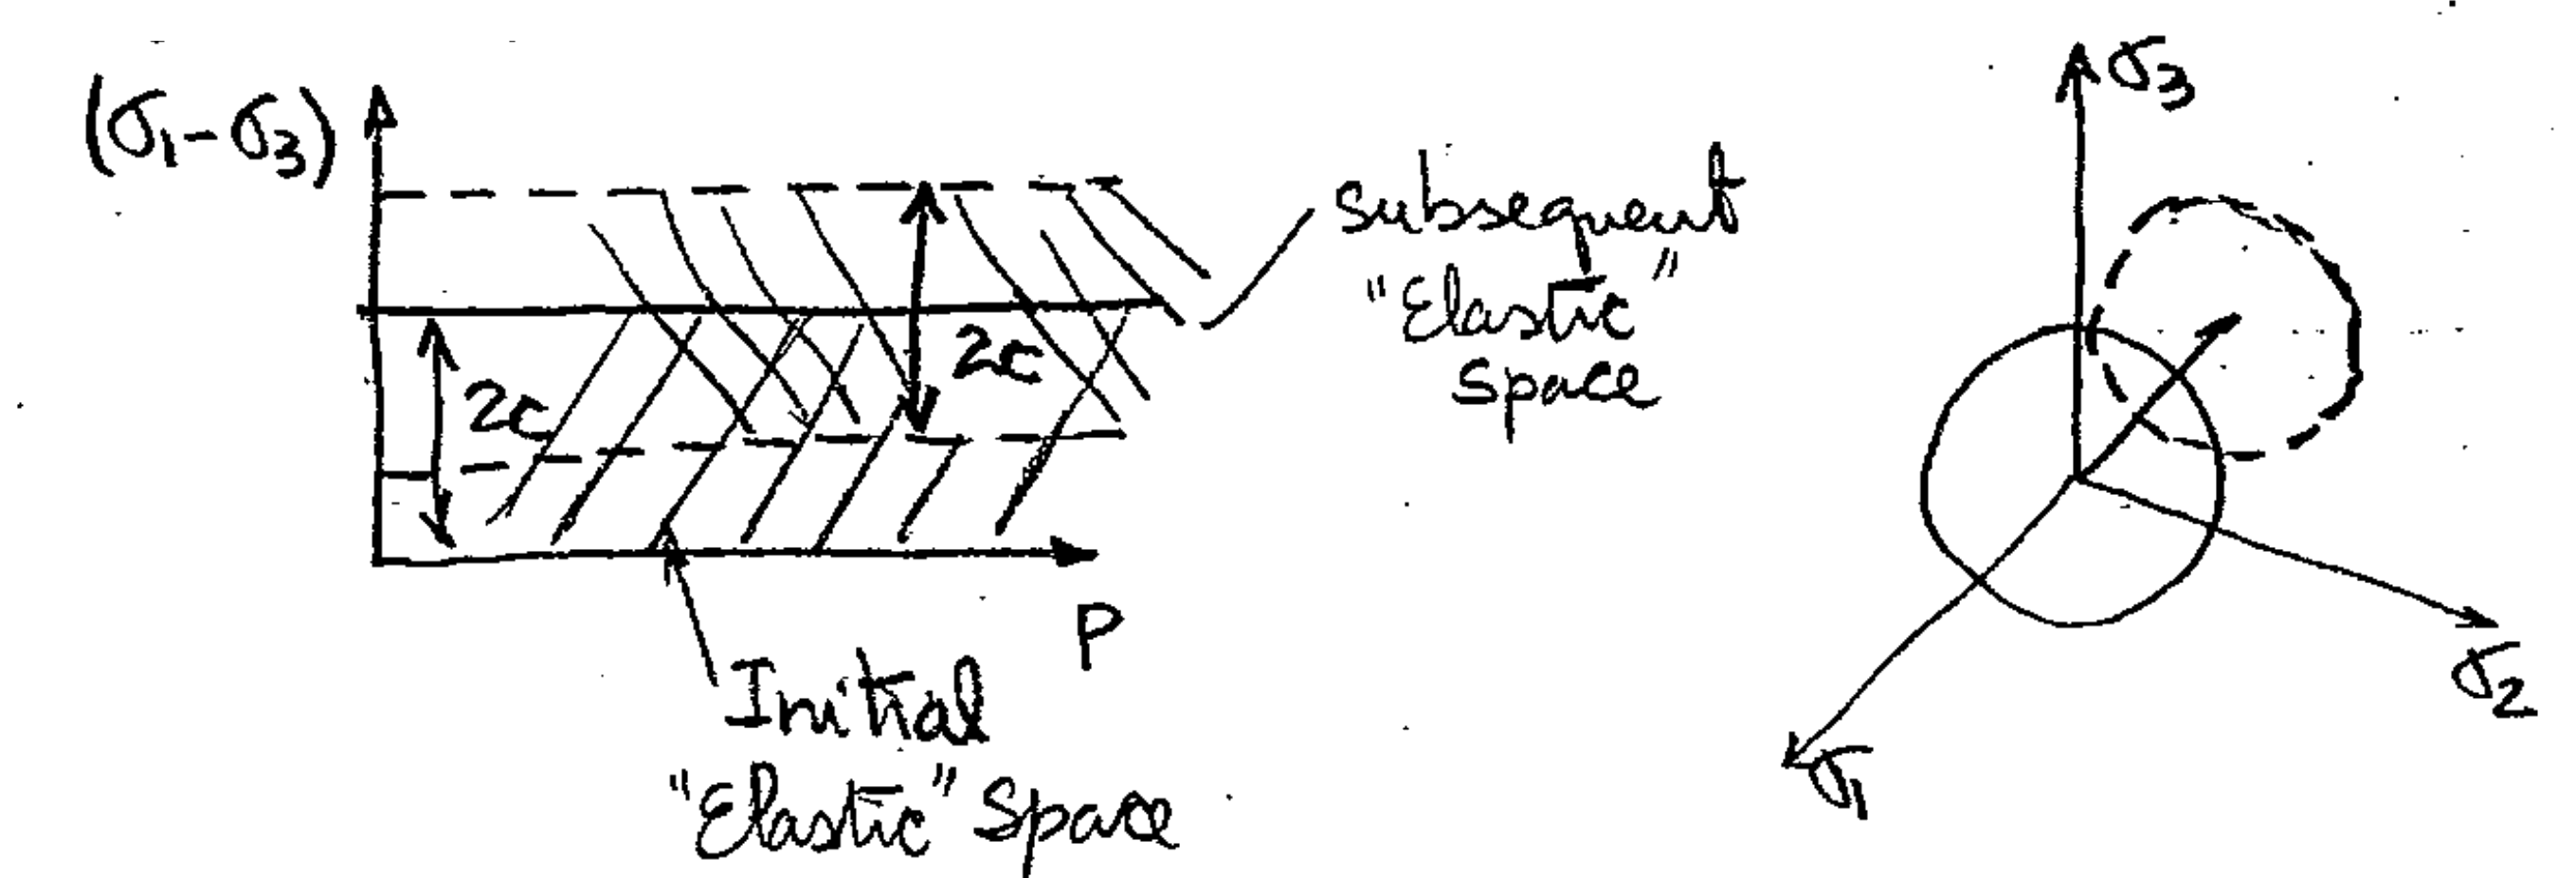 (σ₁-σ₃)
2c
2c
subsequent
"Elastic"
space
P
Initial
"Elastic" Space
σ₃
σ₂
σ₁